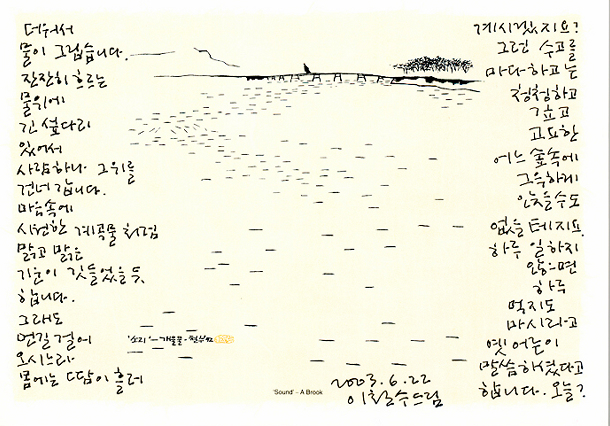 더워서
물이 그립습니다.
잔잔히 흐르는
물위에
긴 섶다리
있어서
사람하나 그위를
건너 갑니다.
마음속에
시원한 계곡물 처럼
맑고 맑은
기운이 깃들었을 듯,
합니다.
그래도
먼길 걸어
오시느라
몸에는 땀이 흘러
계시겠지요?
그런 수고를
마다하고는
청청하고
그윽하고
고요한
어느 숲속에
그윽하게
앉을수도
없을 테지요.
하루 일하지
않으면
하루
먹지도
마시라고
옛 어른이
말씀 하셨다고
합니다. 오늘?
'소리'
'Sound' – A Brook
2003.6.22
이철수드림